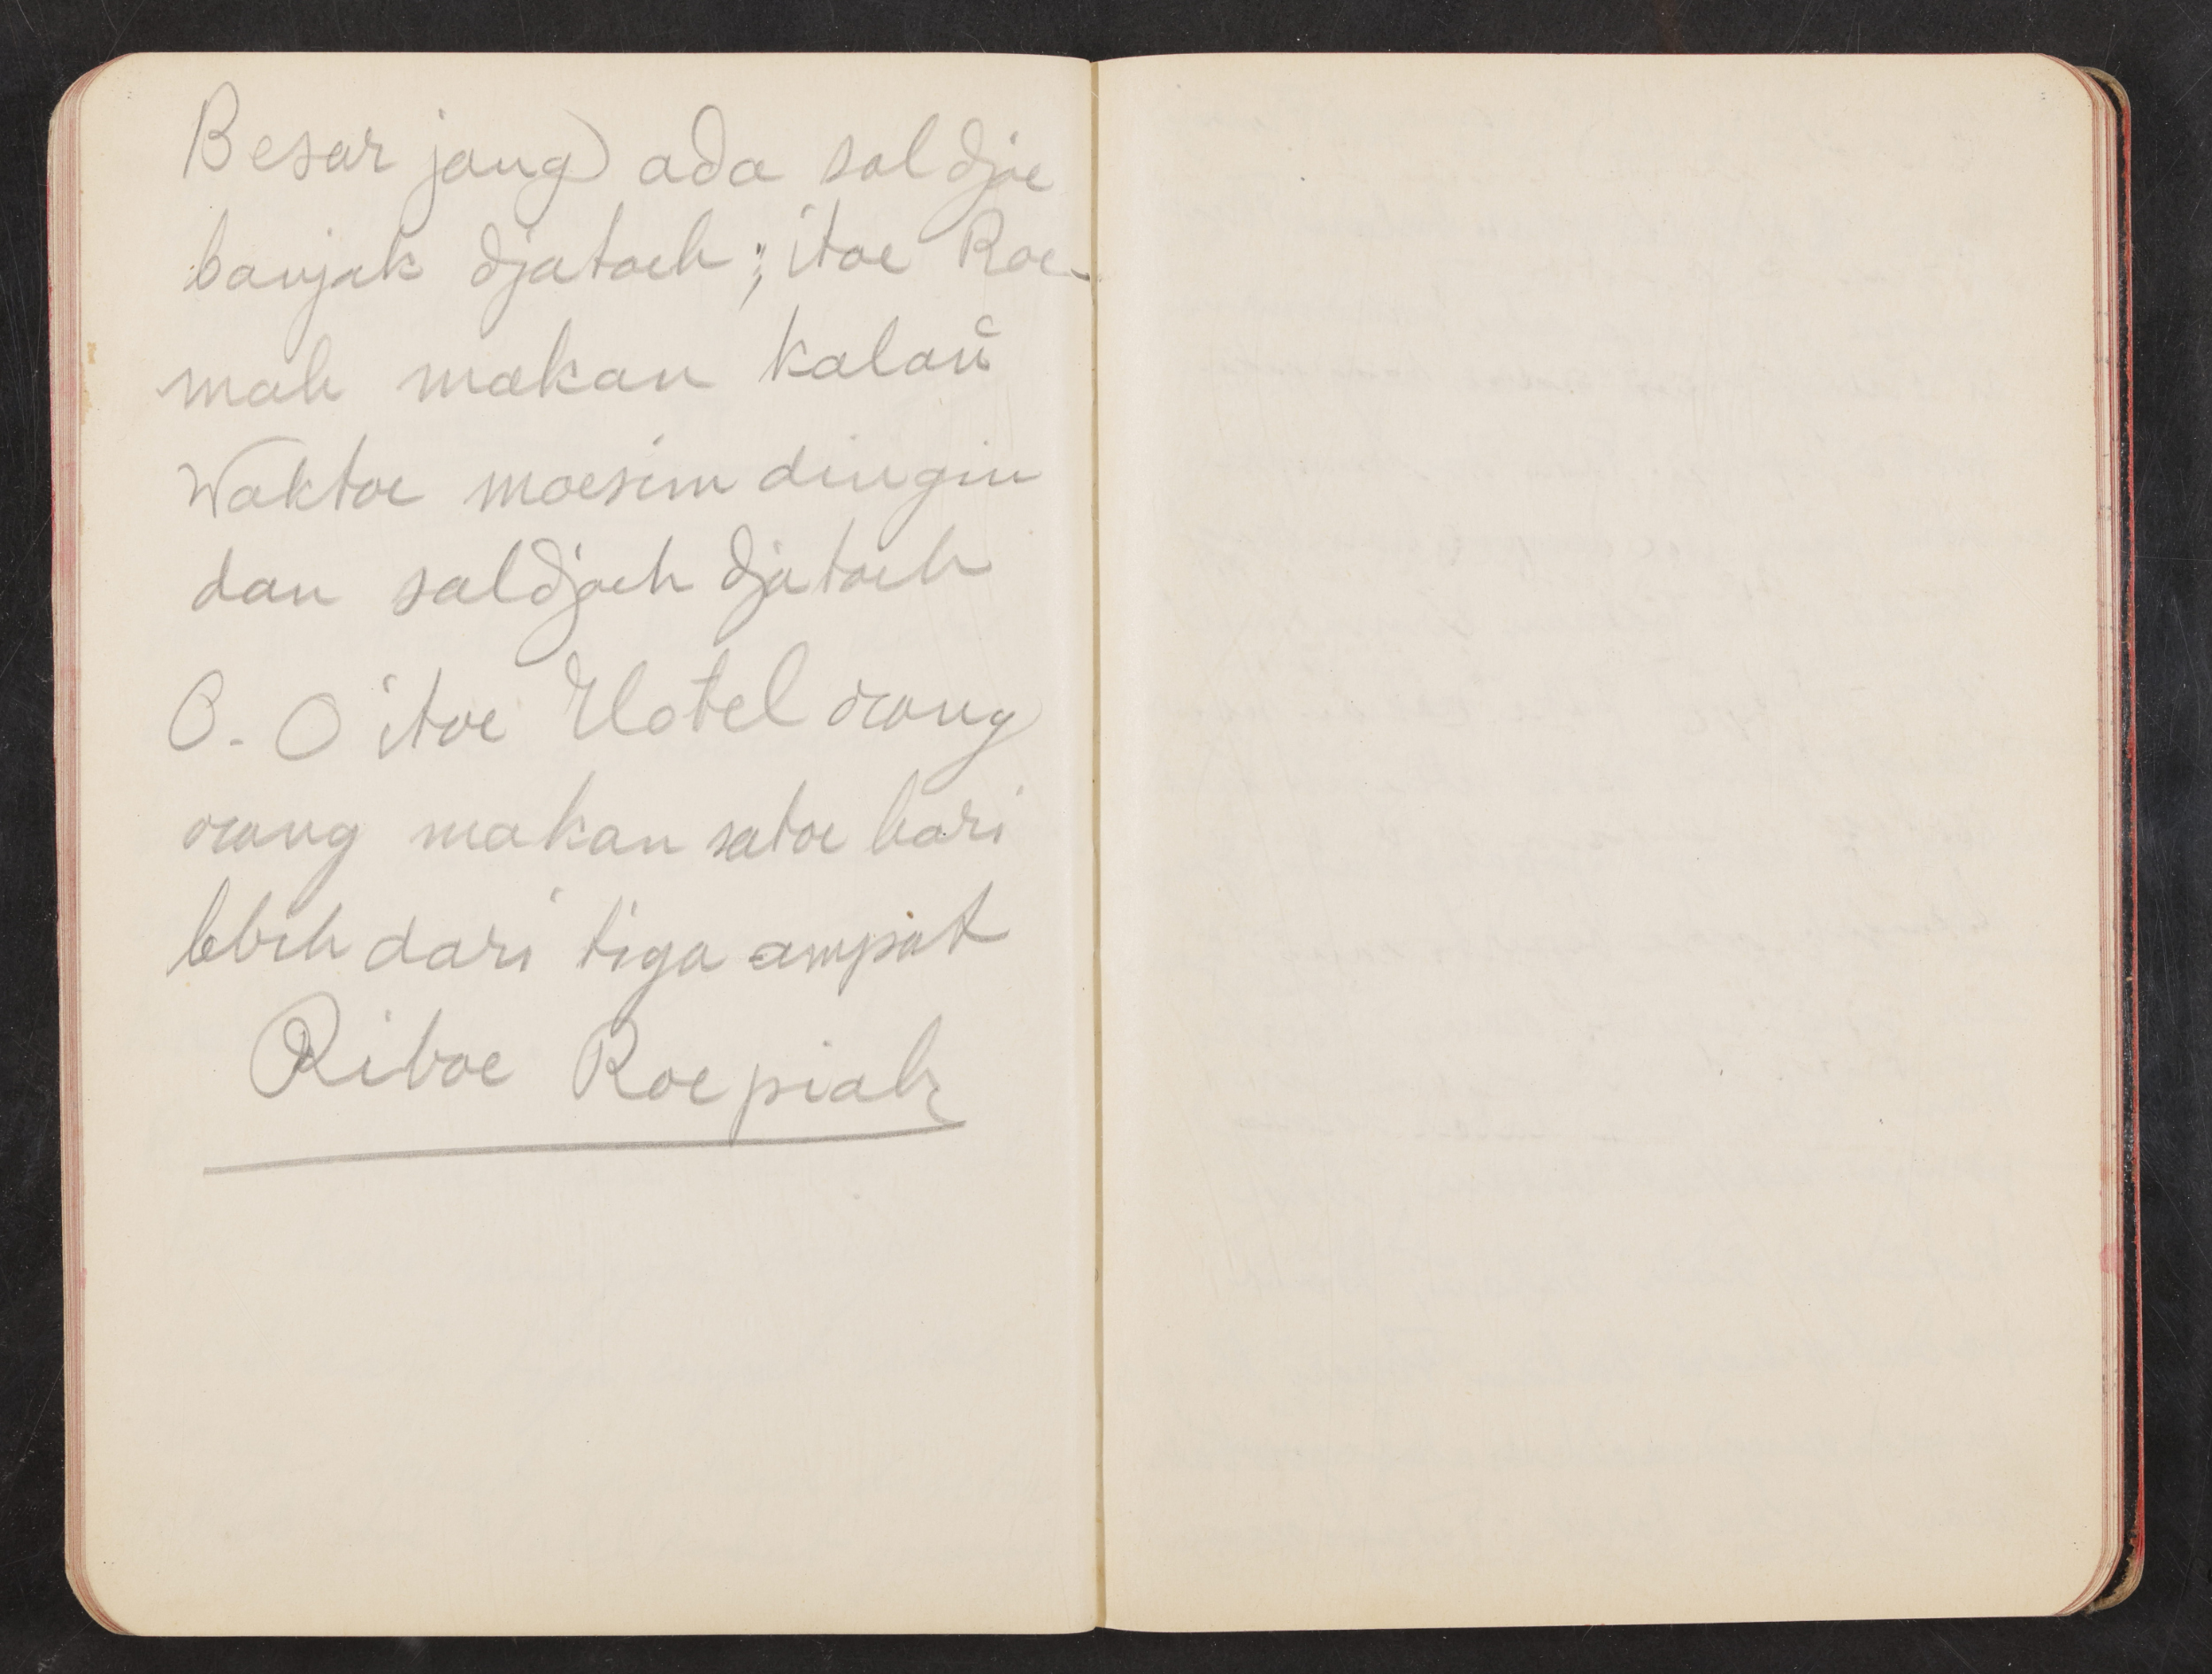 Besar jang ada saldjoe
banjak djatoeh; itoe Roe-
mah makan kalaŭ
Waktoe moesim dingin
dan saldjoeh djatoeh
O. O itoe Hotel orang
orang makan satoe hari
lebih dari tiga ampat
Riboe Roepiah